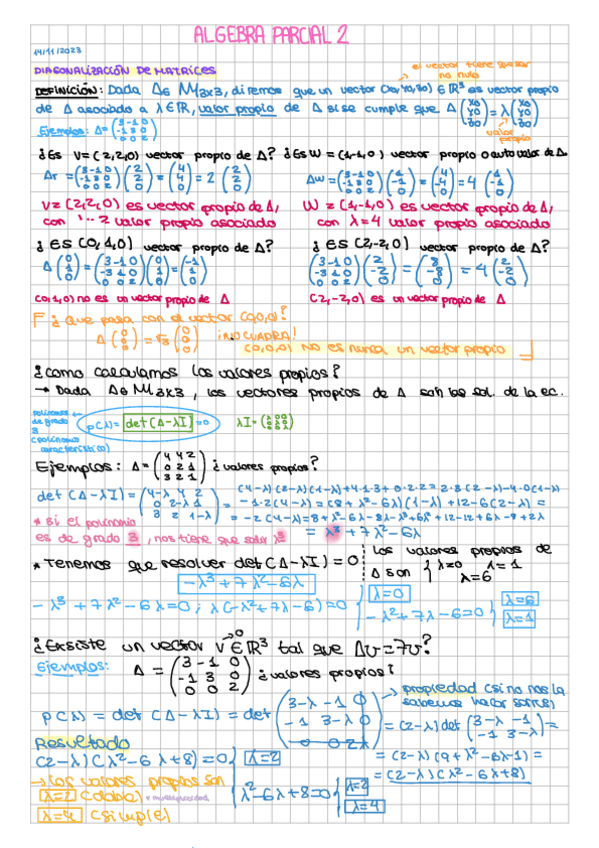 ALGEBRA PARCIAL 2
14/11/2023
DIAGONALIZACIÓN DE MATRICES
el vector tiene que ser no nulo
DEFINICIÓN: Dada A∈ M3x3, diremos que un vector (x0,y0,z0) ∈ℝ³ es vector propio
de A asociado a λ∈ℝ, valor propio de A si se cumple que A (x0 y0 z0) = λ (x0 y0 z0)
valor propio
Ejemplos: A= (3 -1 0 / -1 3 0 / 0 0 2)
¿Es V=(2,2,0) vector propio de A? ¿Es W=(1,-1,0) vector propio o autovalor de A
Av = (3 -1 0 / -1 3 0 / 0 0 2) (2 2 0) = (4 4 0) = 2 (2 2 0)
Aw = (3 -1 0 / -1 3 0 / 0 0 2) (1 -1 0) = (4 -4 0) = 4 (1 -1 0)
V=(2,2,0) es vector propio de A,
con 2 valor propio asociado
W=(1,-1,0) es vector propio de A,
con λ=4 valor propio asociado
¿ES (0,1,0) vector propio de A?
¿ES (2,-2,0) vector propio de A?
A (0 1 0) = (3 -1 0 / -3 1 0 / 0 0 2) (0 1 0) = (-1 1)
(3 -1 0 / -3 1 0 / 0 0 2) (2 -2 0) = (8 -8 0) = 4 (2 -2 0)
(0,1,0) no es un vector propio de A
(2,-2,0) es un vector propio de A
¿Que pasa con el vector (0,0,0)?
A (0 0 0) = √3 (0 0 0) ¡NO CUADRA!
(0,0,0) NO es nunca un vector propio
¿Como calculamos los valores propios?
→ Dada A∈ M3x3, los vectores propios de A son las sol. de la ec.
polinomio de grado 3 (polinomio característico)
p(λ) = det(A-λI) = 0
λI = (λ 0 0 / 0 λ 0 / 0 0 λ)
Ejemplos: A = (4 4 2 / 0 2 1 / 3 2 1) ¿valores propios?
det(A-λI) = (4-λ 4 2 / 0 2-λ 1 / 3 2 1-λ) = (4-λ)(2-λ)(1-λ)+4·1·3+0·2·2-2·3(2-λ)-4·0(1-λ)
-1·2(4-λ) = (8+λ²-6λ)(1-λ)+12-6(2-λ) =
-2(4-λ)=8+λ²-6λ-8λ-λ³+6λ²+12-12+6λ-8+2λ
= λ³+7λ²-6λ
* Si el polinomio
es de grado 3, nos tiene que salir λ³
* Tenemos que resolver det(A-λI)=0
-λ³+7λ²-6λ
Los valores propios de
A son { λ=0 λ=1
λ=6
-λ³+7λ²-6λ=0; λ(-λ²+7λ-6)=0 { λ=0
-λ²+7λ-6=0 { λ=6
λ=1
¿Existe un vector v≠0 ∈ℝ³ tal que Av=7v?
Ejemplos: A = (3 -1 0 / -1 3 0 / 0 0 2) ¿valores propios?
propiedad (si no nos la sabemos
p(λ) = det(A-λI) = det (3-λ -1 0 / -1 3-λ 0 / 0 0 2-λ) = (2-λ) det (3-λ -1 / -1 3-λ) =
= (2-λ)(9+λ²-6λ-1) =
= (2-λ)(λ²-6λ+8)
Resultado
(2-λ)(λ²-6λ+8)=0 { λ=2
λ²-6λ+8=0 { λ=2
λ=4
→ Los valores propios son
λ=2 (doble) * multiplicidad
λ=4 (simple)